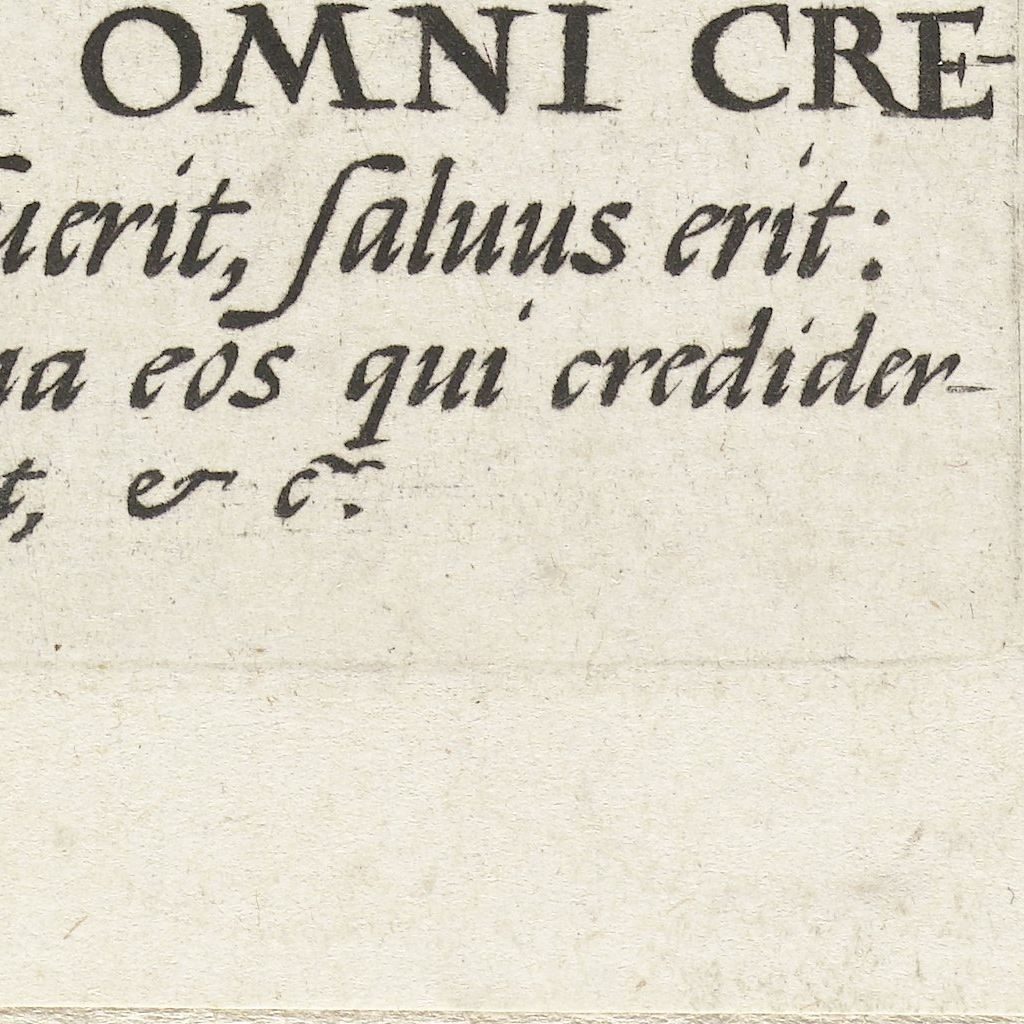 OMNI CRE-
uerit, ſaluus erit:
eos qui credider-
t, & c̃.